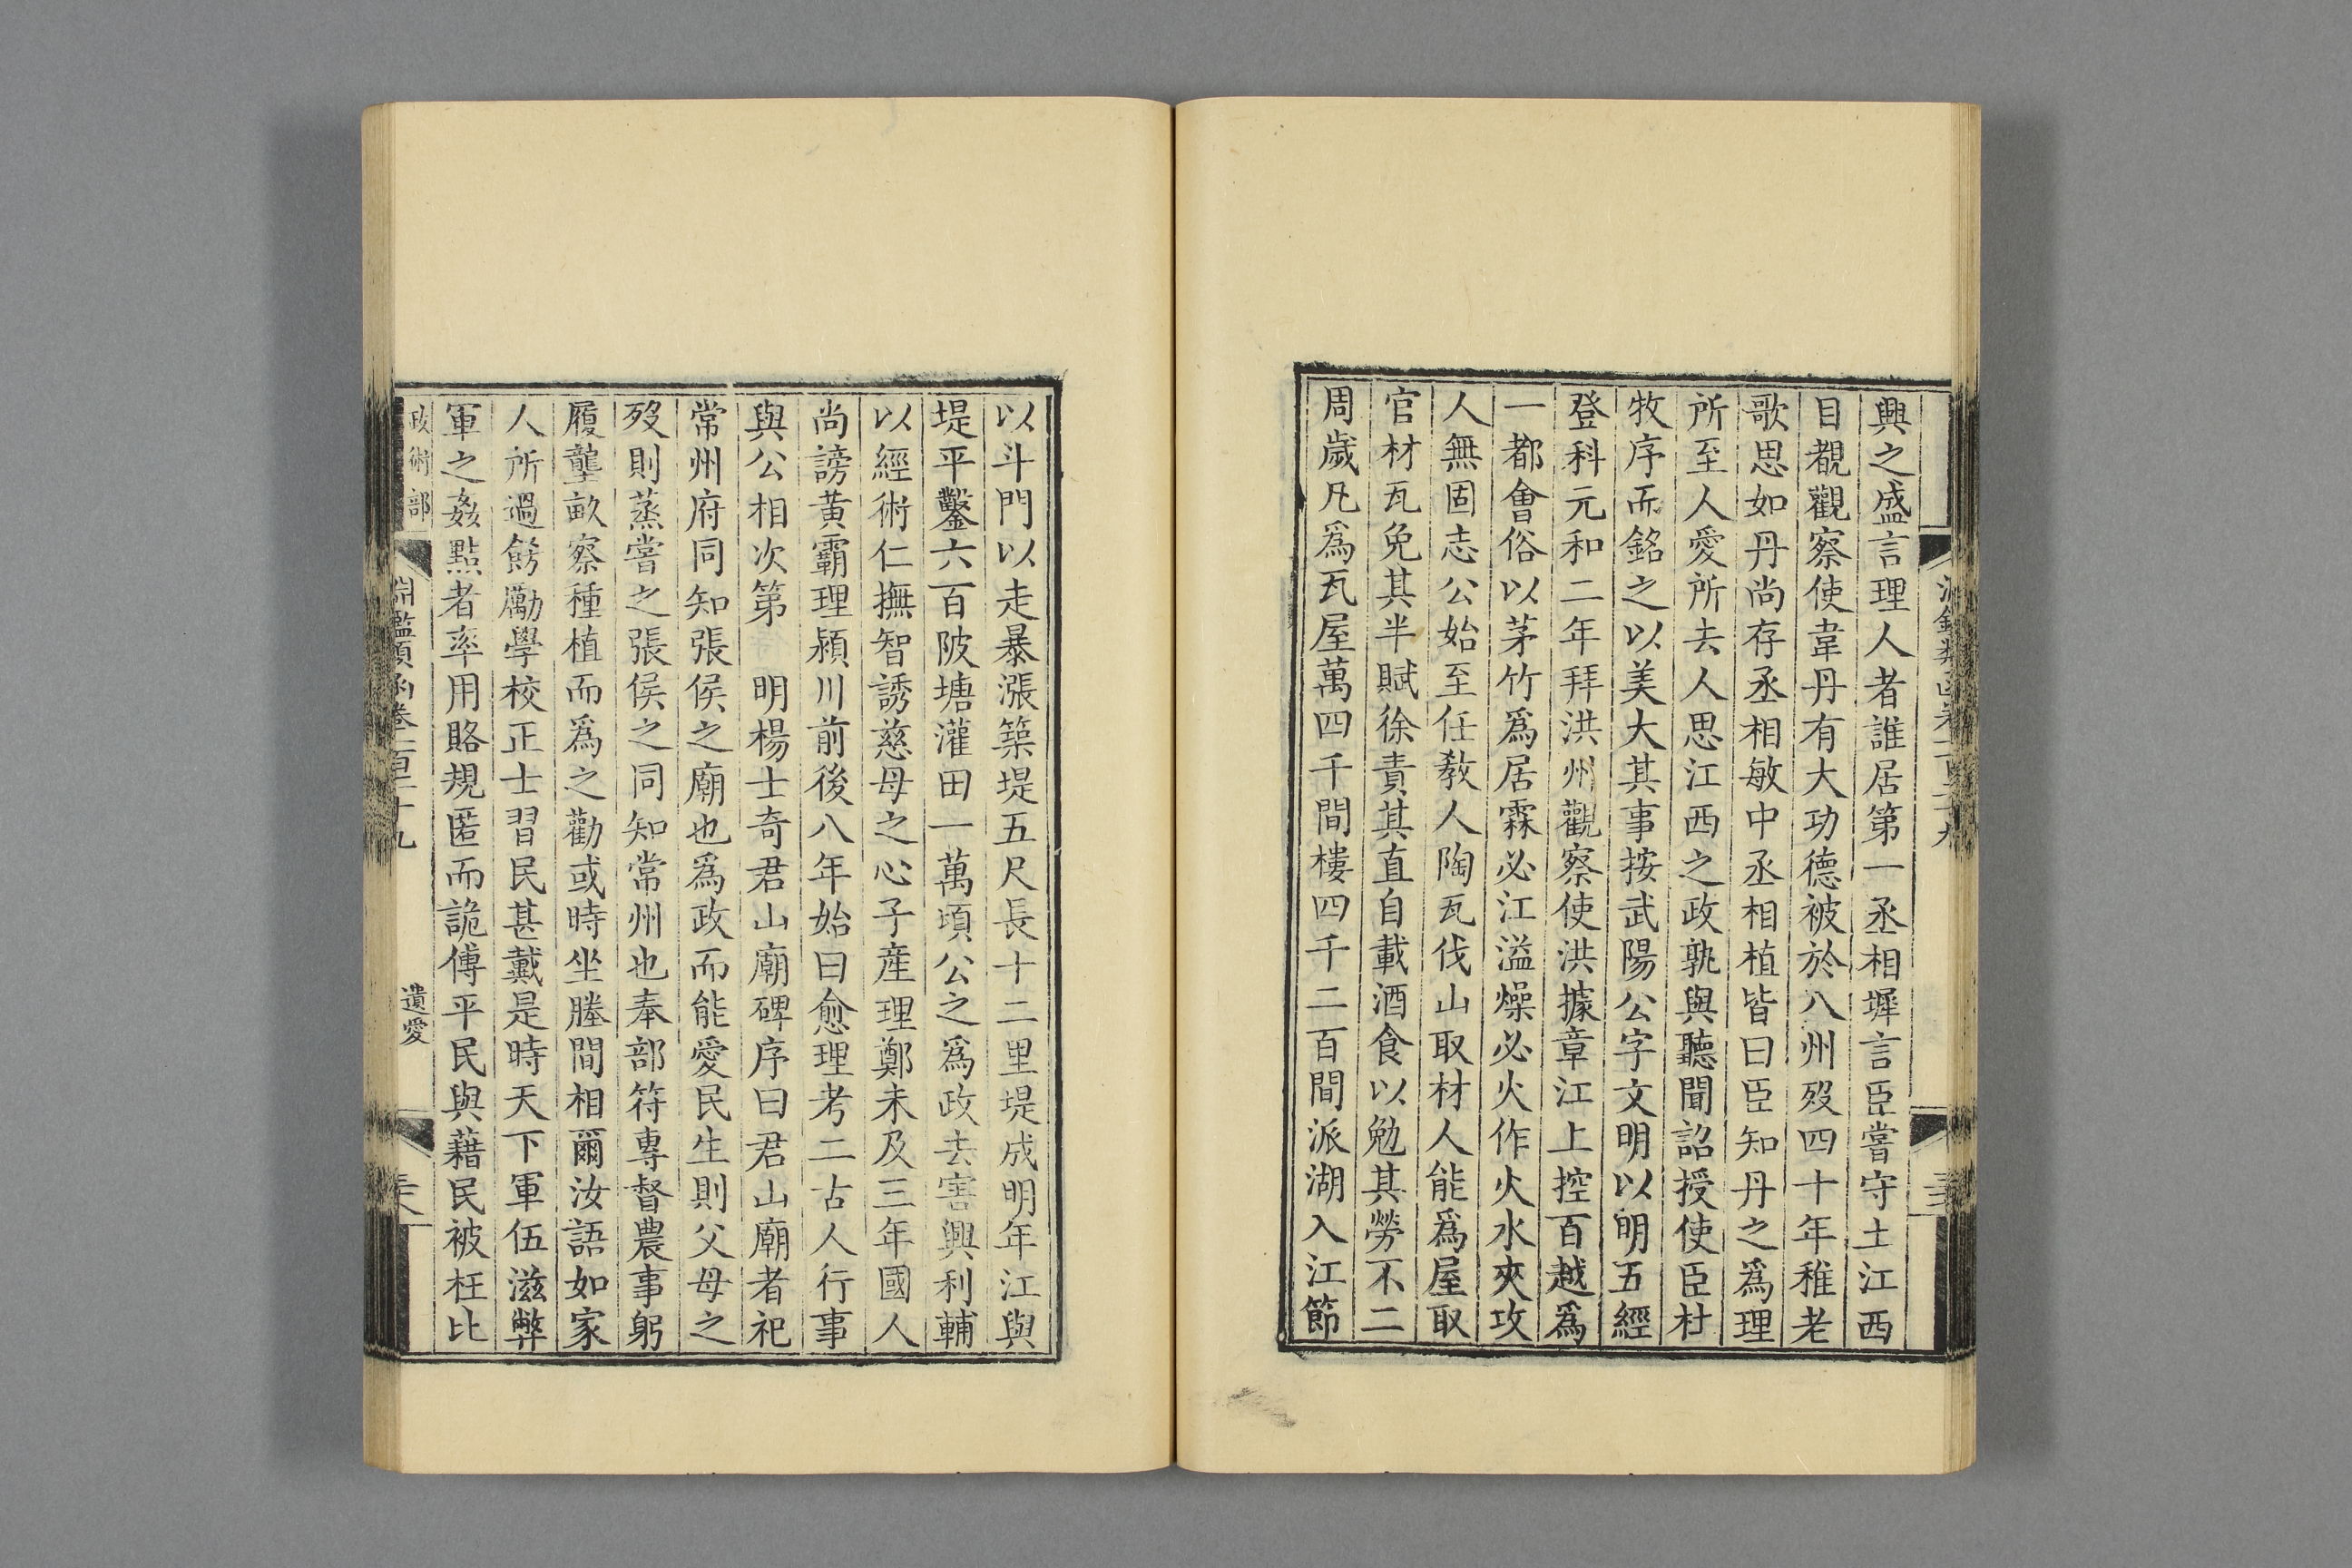 興之盛言理人者誰居第一丞相墀言臣嘗守土江西
目覩觀察使韋丹有大功德被於八州歿四十年稚老
歌思如丹尚存丞相敏中丞相植皆曰臣知丹之爲理
所至人愛所去人思江西之政孰與聽聞詔授使臣杜
牧序而銘之以美大其事按武陽公字文明以明五經
登科元和二年拜洪州觀察使洪據章江上控百越爲
一都會俗以茅竹爲居霖必江溢燥必火作火水夾攻
人無固志公始至任教人陶瓦伐山取材人能爲屋取
官材瓦免其半賦徐責其直自載酒食以勉其勞不二
周歲凡爲瓦屋萬四千間樓四千二百間派湖入江節
以斗門以走暴漲築堤五尺長十二里堤成明年江與
堤平鑿六百陂塘灌田一萬頃公之爲政去害興利輔
以經術仁撫智誘慈母之心子產理鄭未及三年國人
尚謗黃霸理潁川前後八年始曰愈理考二古人行事
與公相次第 明楊士奇君山廟碑序曰君山廟者祀
常州府同知張侯之廟也爲政而能愛民生則父母之
歿則蒸嘗之張侯之同知常州也奉部符專督農事躬
履壟畝察種植而爲之勸或時坐塍間相爾汝語如家
人所過飭勵學校正士習民甚戴是時天下軍伍滋弊
軍之姦黠者率用賂規匿而詭傅平民與藉民被枉比
政術部
淵鑑類函卷一百二十九
遺愛